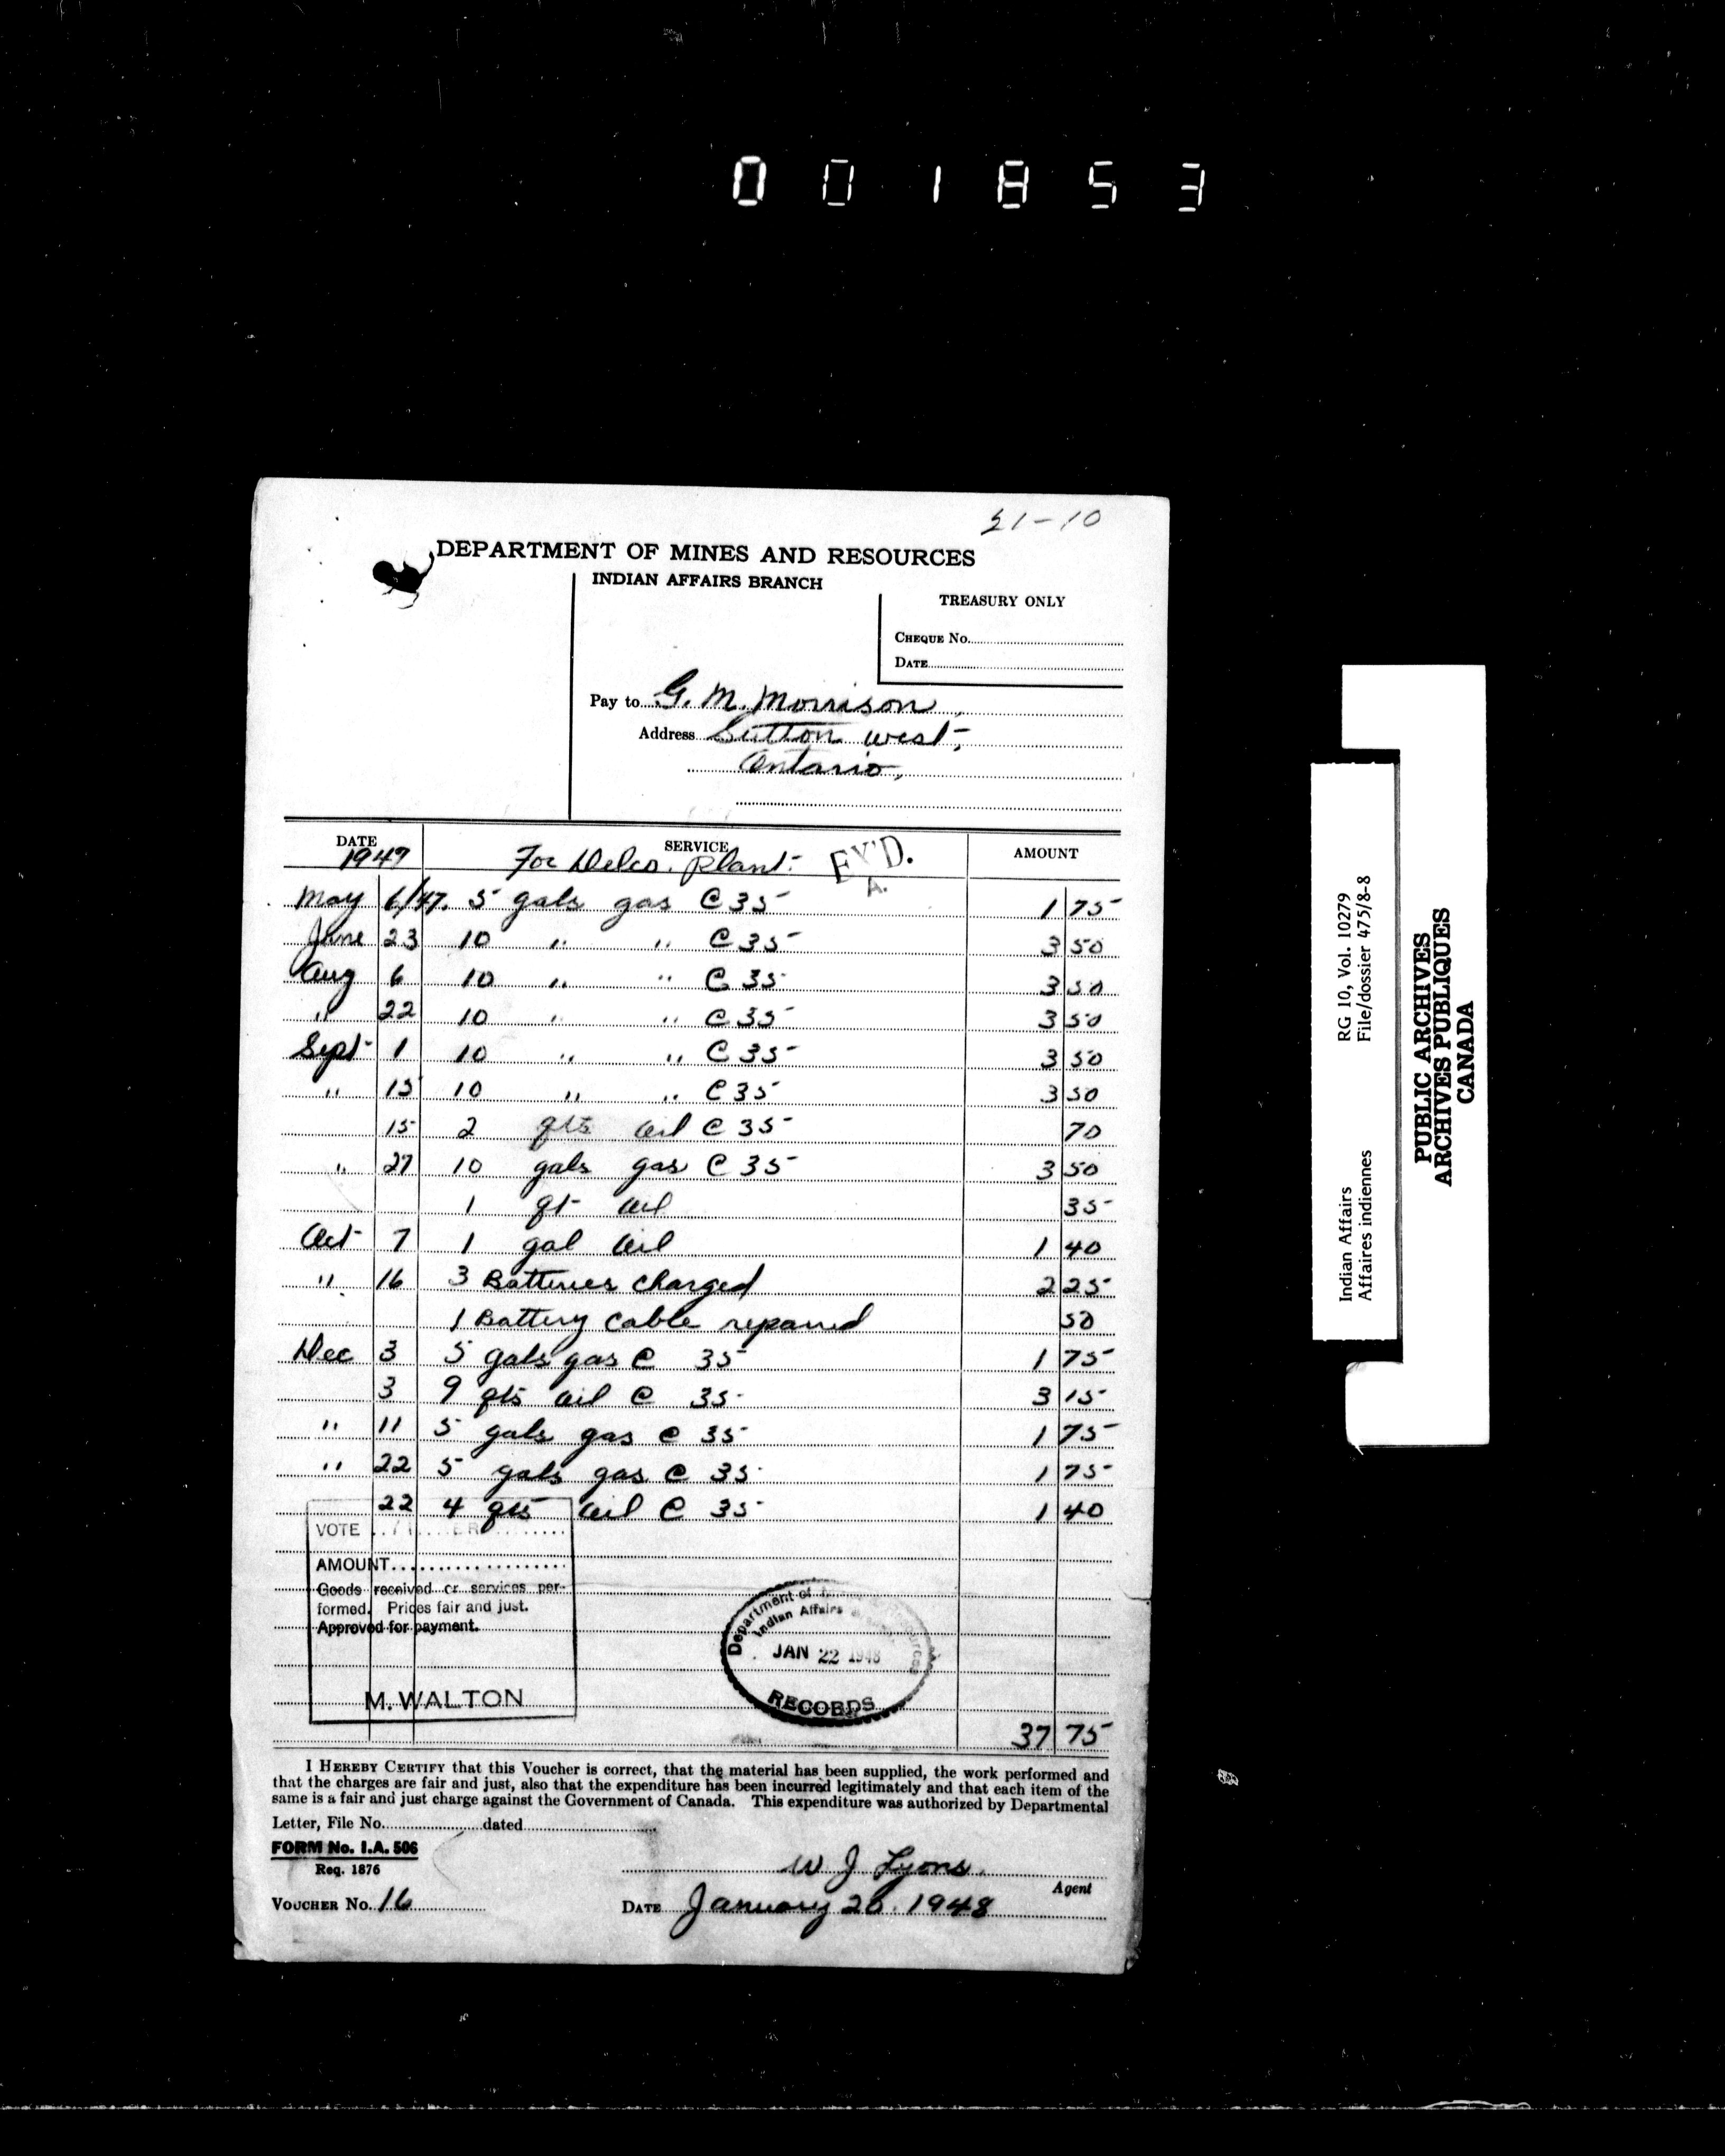 001853
21-10
DEPARTMENT OF MINES AND RESOURCES
INDIAN AFFAIRS BRANCH
TREASURY ONLY
CHEQUE No.
DATE
Pay to G. M. Morrison,
Address Sutton West,
Ontario,
DATE SERVICE AMOUNT
1947 For Delco. Plant. EX'D.
A.
May 6/47. 5 gals gas @ 35 1 75
June 23 10 " " @ 35 3 50
Aug 6 10 " " @ 35 3 50
" 22 10 " " @ 35 3 50
Sept 1 10 " " @ 35 3 50
" 15 10 " " @ 35 3 50
15 2 qts oil @ 35 70
" 27 10 gals gas @ 35 3 50
1 qt oil 35
Oct 7 1 gal oil 1 40
" 16 3 Batteries charged 2 25
1 Battery cable repaired 50
Dec 3 5 gals gas @ 35 1 75
3 9 qts oil @ 35 3 15
" 11 5 gals gas @ 35 1 75
" 22 5 gals gas @ 35 1 75
22 4 qts oil @ 35 1 40
VOTE
AMOUNT
Goods received or services per-
formed. Prices fair and just.
Approved for payment.
M. WALTON
Department of
Indian Affairs
JAN 22 1948
RECORDS
37 75
I HEREBY CERTIFY that this Voucher is correct, that the material has been supplied, the work performed and
that the charges are fair and just, also that the expenditure has been incurred legitimately and that each item of the
same is a fair and just charge against the Government of Canada. This expenditure was authorized by Departmental
Letter, File No. dated
FORM No. I.A. 506
Req. 1876
W J Lyons.
Agent
VOUCHER No. 16 DATE January 20. 1948
Indian Affairs RG 10, Vol. 10279
Affaires indiennes File/dossier 475/8-8
PUBLIC ARCHIVES
ARCHIVES PUBLIQUES
CANADA